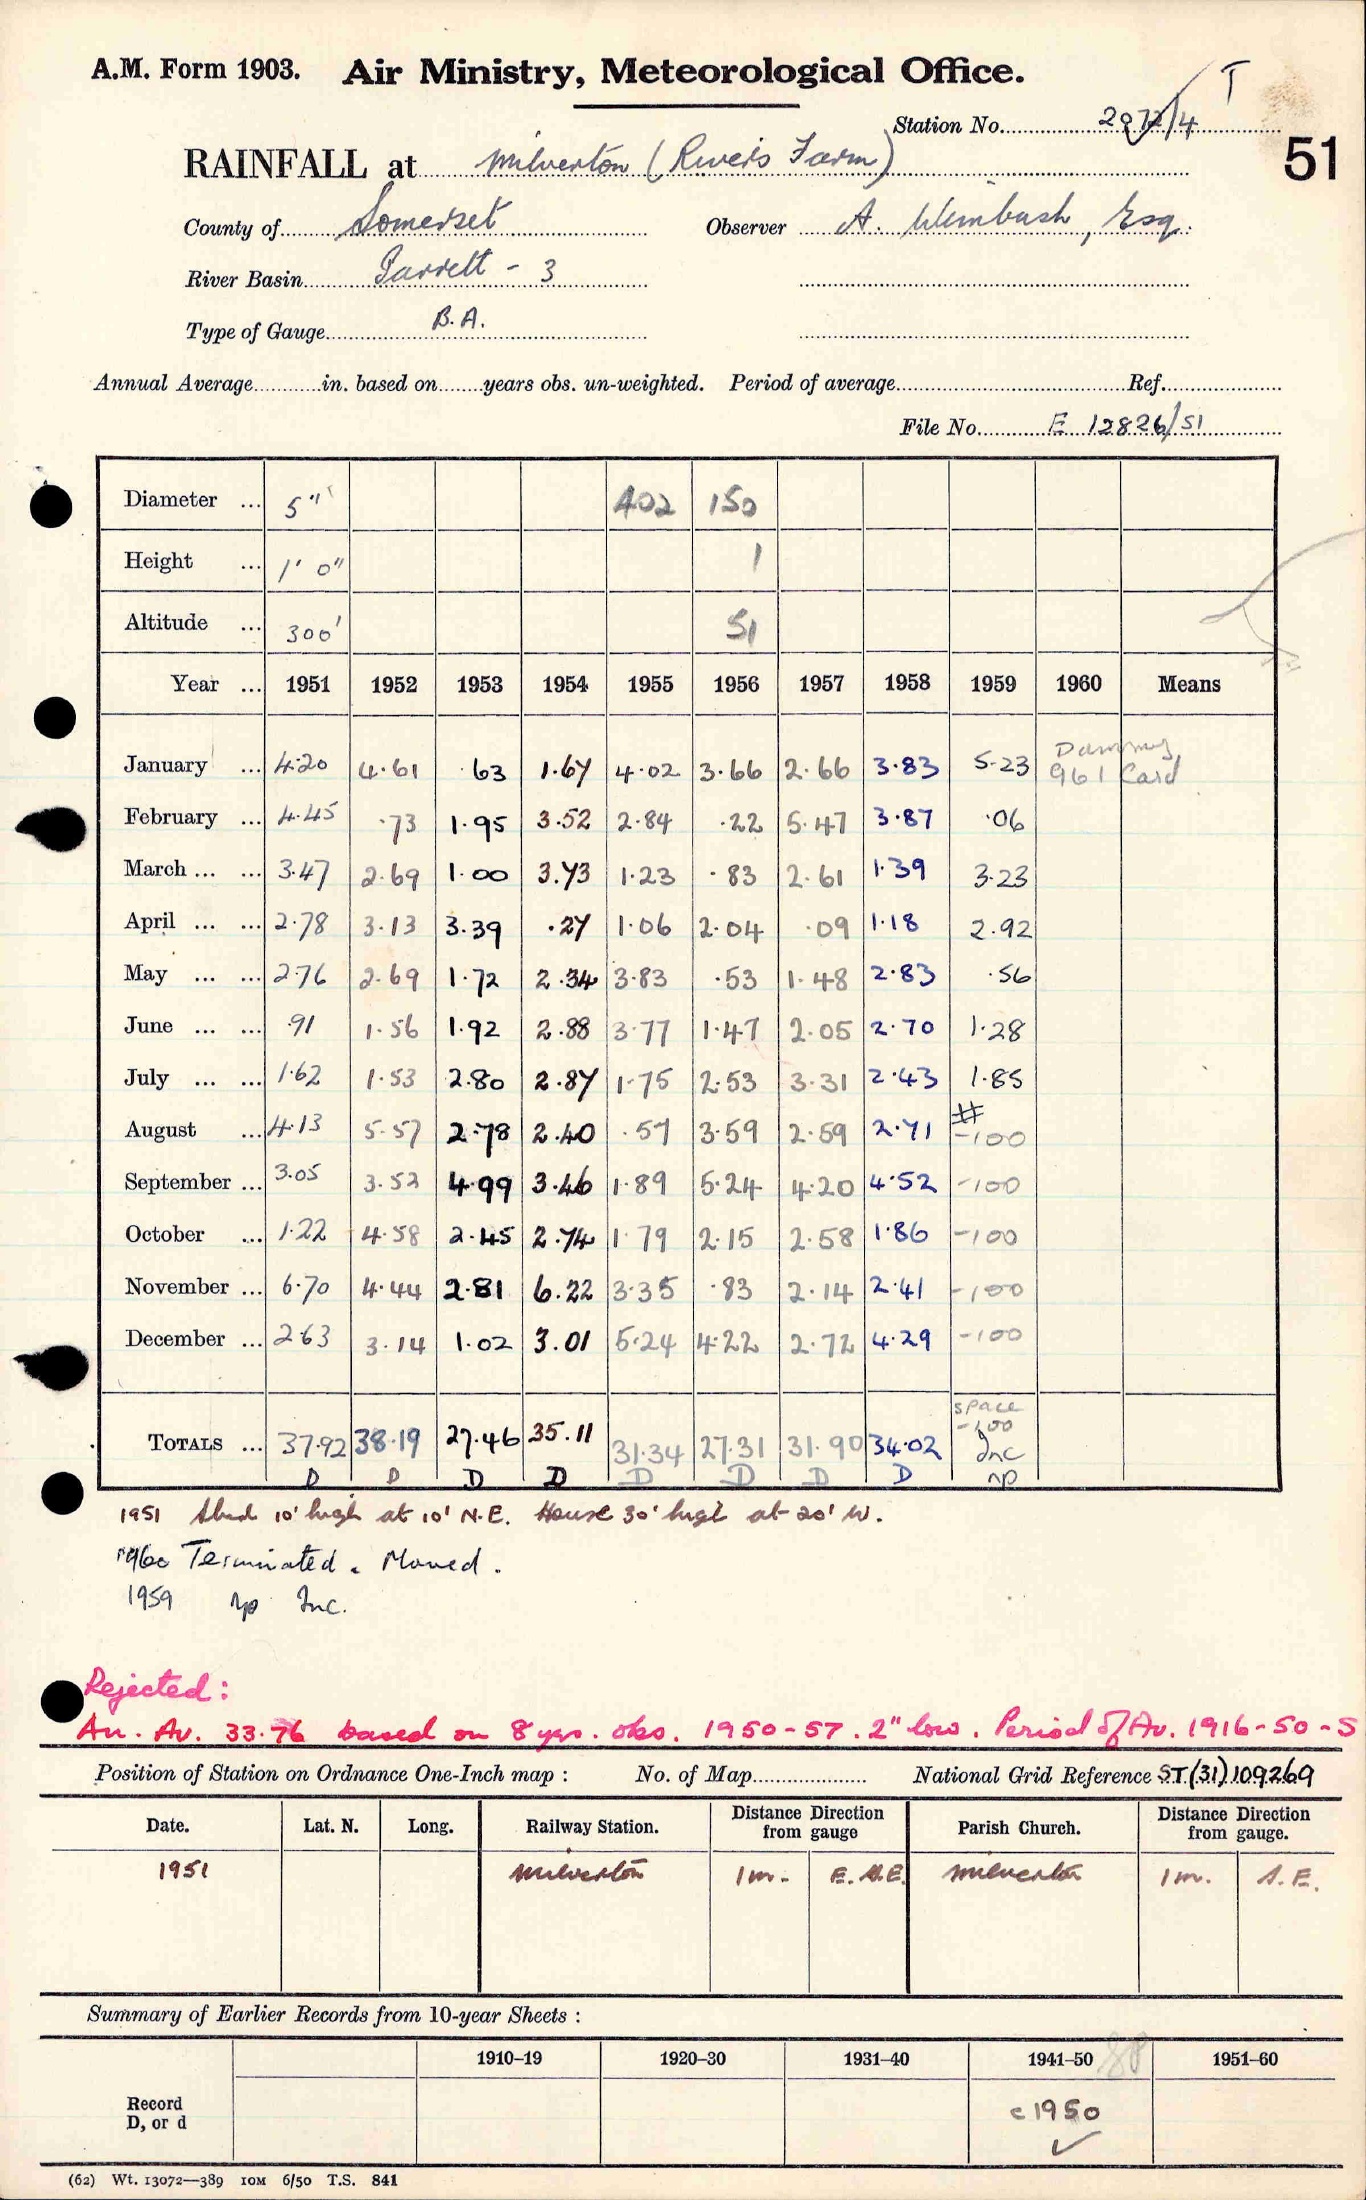 A.M. Form 1903. Air Ministry, Meteorological Office. T
Station No. 2972/4
51
RAINFALL at Milverton (Rivers Farm)
County of Somerset Observer A. Wimbush, Esq.
River Basin Parrett - 3
Type of Gauge B.A.
Annual Average in. based on years obs. un-weighted. Period of average Ref.
File No. E 12826/51
Diameter ... 5" 402 150
Height ... 1' 0" 1
Altitude ... 300' 51
Year ... 1951 1952 1953 1954 1955 1956 1957 1958 1959 1960 Means
January ... 4.20 4.61 .63 1.67 4.02 3.66 2.66 3.83 5.23 Dummy 961 Card
February ... 4.45 .73 1.95 3.52 2.84 .22 5.47 3.87 .06
March ... ... 3.47 2.69 1.00 3.73 1.23 .83 2.61 1.39 3.23
April ... ... 2.78 3.13 3.39 .27 1.06 2.04 .09 1.18 2.92
May ... ... 2.76 2.69 1.72 2.34 3.83 .53 1.48 2.83 .56
June ... ... .91 1.56 1.92 2.88 3.77 1.47 2.05 2.70 1.28
July ... ... 1.62 1.53 2.80 2.87 1.75 2.53 3.31 2.43 1.85
August ... 4.13 5.57 2.78 2.40 .57 3.59 2.59 2.71 # -100
September ... 3.05 3.52 4.99 3.46 1.89 5.24 4.20 4.52 -100
October ... 1.22 4.58 2.45 2.74 1.79 2.15 2.58 1.86 -100
November ... 6.70 4.44 2.81 6.22 3.35 .83 2.14 2.41 -100
December ... 2.63 3.14 1.02 3.01 5.24 4.22 2.72 4.29 -100
space
-100
TOTALS ... 37.92 38.19 27.46 35.11 31.34 27.31 31.90 34.02 Inc
D D D D D D D D np
1951 Shed 10' high at 10' N.E. House 30' high at 20' W.
1960 Terminated. Moved.
1959 np Inc.
Rejected:
An. Av. 33.76 based on 8 yrs. obs. 1950-57. 2" low. Period of Av. 1916-50 - S
Position of Station on Ordnance One-Inch map : No. of Map National Grid Reference ST(31)109269
Date. Lat. N. Long. Railway Station. Distance Direction from gauge Parish Church. Distance Direction from gauge.
1951 Milverton 1m. E.N.E. Milverton 1m. S.E.
Summary of Earlier Records from 10-year Sheets :
1910–19 1920–30 1931–40 1941–50 1951–60
Record
D, or d
c1950
(62) Wt. 13072—389 10M 6/50 T.S. 841